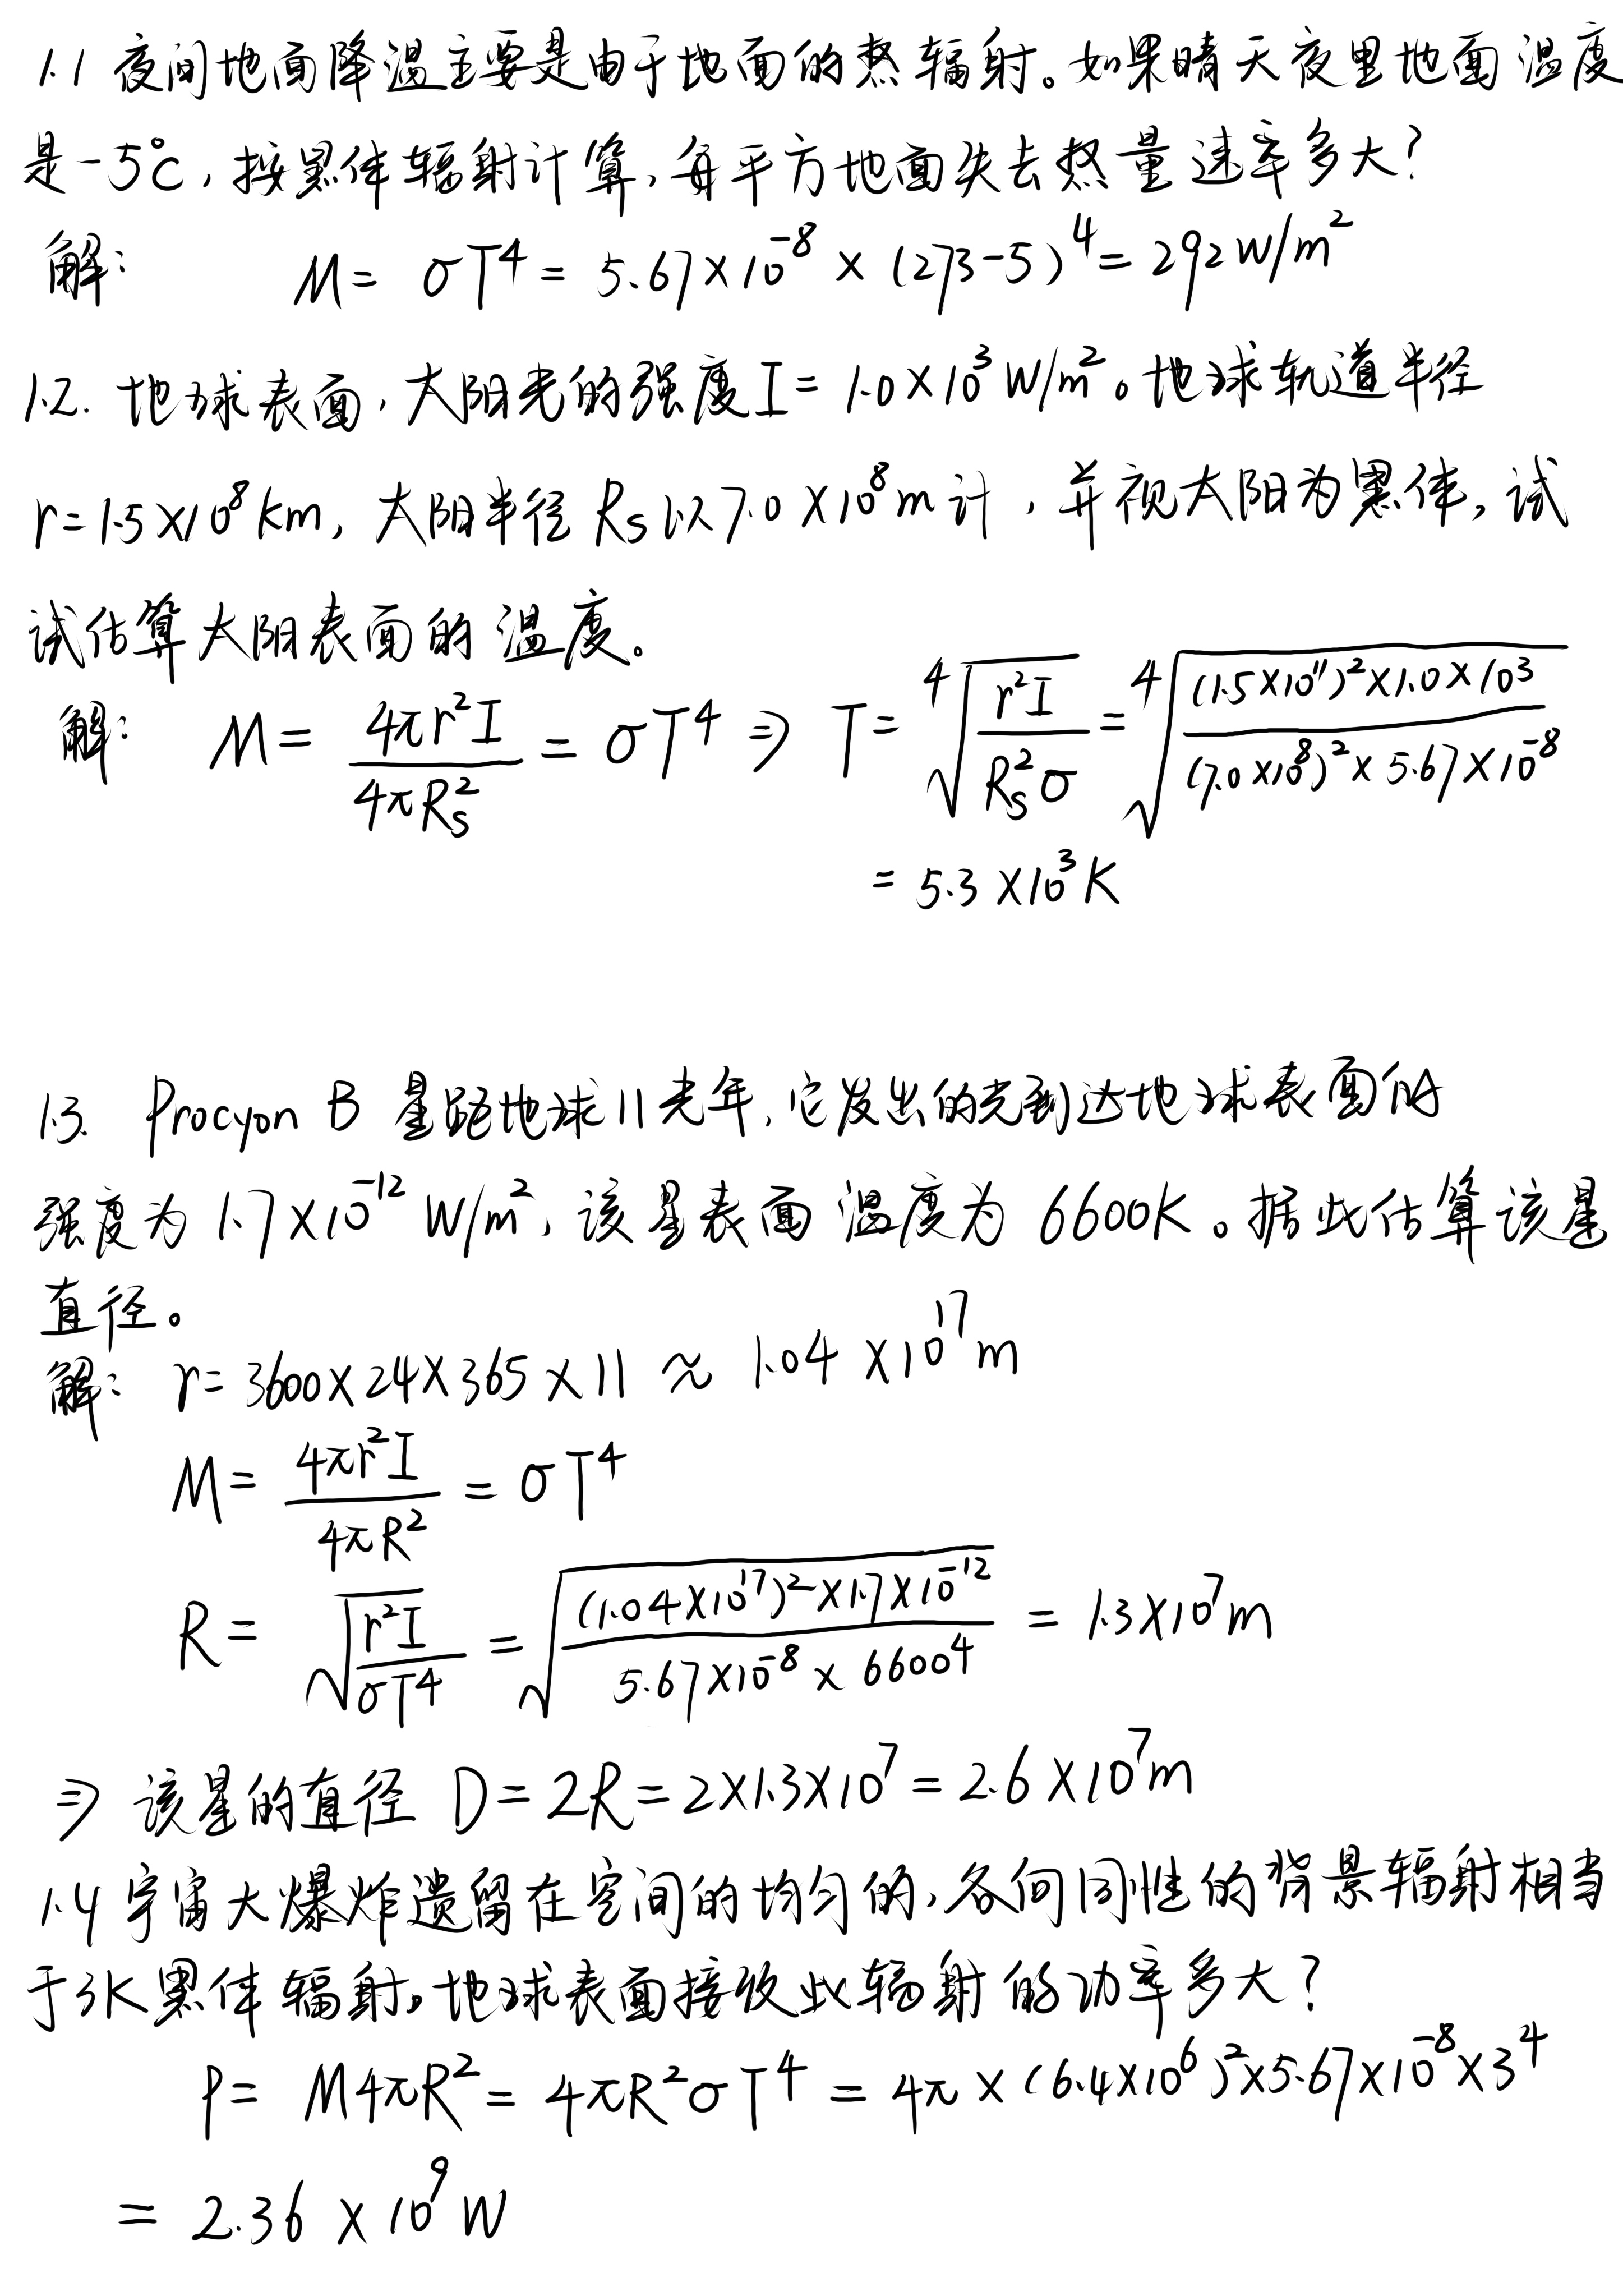 1.1 夜间地面降温主要是由于地面的热辐射。如果晴天夜里地面温度
是-5℃,按黑体辐射计算,每平方地面失去热量速率多大?
解: M = σT⁴ = 5.67×10⁻⁸ × (273-5)⁴ = 292 W/m²
1.2. 地球表面,太阳光的强度I = 1.0×10³ W/m²。地球轨道半径
r=1.5×10⁸ km, 太阳半径 Rs 以 7.0×10⁸ m 计,并视太阳为黑体,试
试估算太阳表面的温度。
解: M = 4πr²I / 4πRs² = σT⁴ ⇒ T = ⁴√(r²I / Rs²σ) = ⁴√((1.5×10¹¹)²×1.0×10³ / (7.0×10⁸)²×5.67×10⁻⁸)
= 5.3×10³ K
1.3. Procyon B 星距地球11光年,它发出的光到达地球表面的
强度为 1.7×10⁻¹² W/m²,该星表面温度为 6600K。据此估算该星
直径。
解: r = 3600×24×365×11 ≈ 1.04×10¹⁷ m
M = 4πr²I / 4πR² = σT⁴
R = √(r²I / σT⁴) = √((1.04×10¹⁷)²×1.7×10⁻¹² / 5.67×10⁻⁸×6600⁴) = 1.3×10⁷ m
⇒ 该星的直径 D = 2R = 2×1.3×10⁷ = 2.6×10⁷ m
1.4 宇宙大爆炸遗留在空间的均匀的,各向同性的背景辐射相当
于3K黑体辐射。地球表面接收此辐射的功率多大?
P = M4πR² = 4πR²σT⁴ = 4π×(6.4×10⁶)²×5.67×10⁻⁸×3⁴
= 2.36×10⁹ W